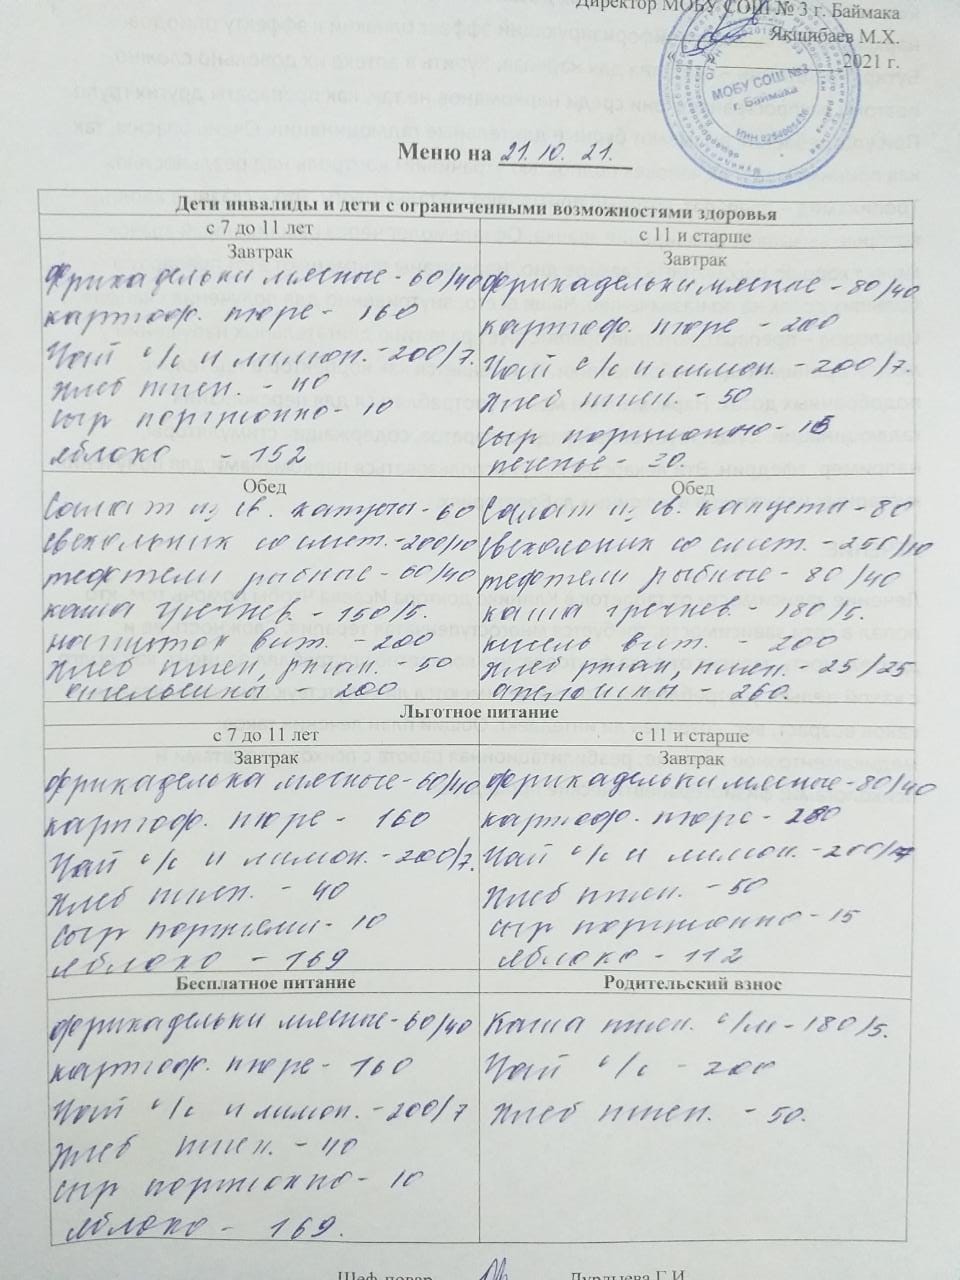 Директор МОБУ СОШ № 3 г. Баймака
Якшибаев М.Х.
2021 г.
МОБУ СОШ №3
г. Баймака
Меню на 21.10.21.
Дети инвалиды и дети с ограниченными возможностями здоровья
с 7 до 11 лет
Завтрак
фрикадельки мясные - 60/40
картоф. пюре - 160
Чай с/с и лимон. - 200/7.
Хлеб пшен. - 40
сыр порционно - 10
яблоко - 152
с 11 и старше
Завтрак
фрикадельки мясные - 80/40
картоф. пюре - 200
Чай с/с и лимон. - 200/7.
Хлеб пшен. - 50
сыр порционно - 15
печенье - 20.
Обед
Салат из св. капусты - 60
свекольник со смет. - 200/10
тефтели рыбные - 60/40
каша гречнев. - 150/5.
напиток вит. - 200
Хлеб пшен, ржан. - 50
апельсины 200
Обед
Салат из св. капуста - 80
свекольник со смет. - 250/10
тефтели рыбные - 80/40
каша гречнев. - 180/5.
кисель вит. - 200
Хлеб ржан, пшен. - 25/25
апельсины - 260.
Льготное питание
с 7 до 11 лет
Завтрак
фрикаделька мясные - 60/40
картоф. пюре - 160
Чай с/с и лимон. - 200/7.
Хлеб пшен. - 40
сыр порциями - 10
яблоко - 169
с 11 и старше
Завтрак
фрикадельки мясные - 80/40
картоф. пюре - 200
Чай с/с и лимон. - 200/7
Хлеб пшен. - 50
сыр порционно - 15
яблоко - 112
Бесплатное питание
фрикадельки мясные - 60/40
картоф. пюре - 160
Чай с/с и лимон. - 200/7
Хлеб пшен. - 40
сыр порционно - 10
яблоко - 169.
Родительский взнос
Каша пшен. с/м - 180/5.
Чай с/с - 200
Хлеб пшен. - 50.
Шеф-повар